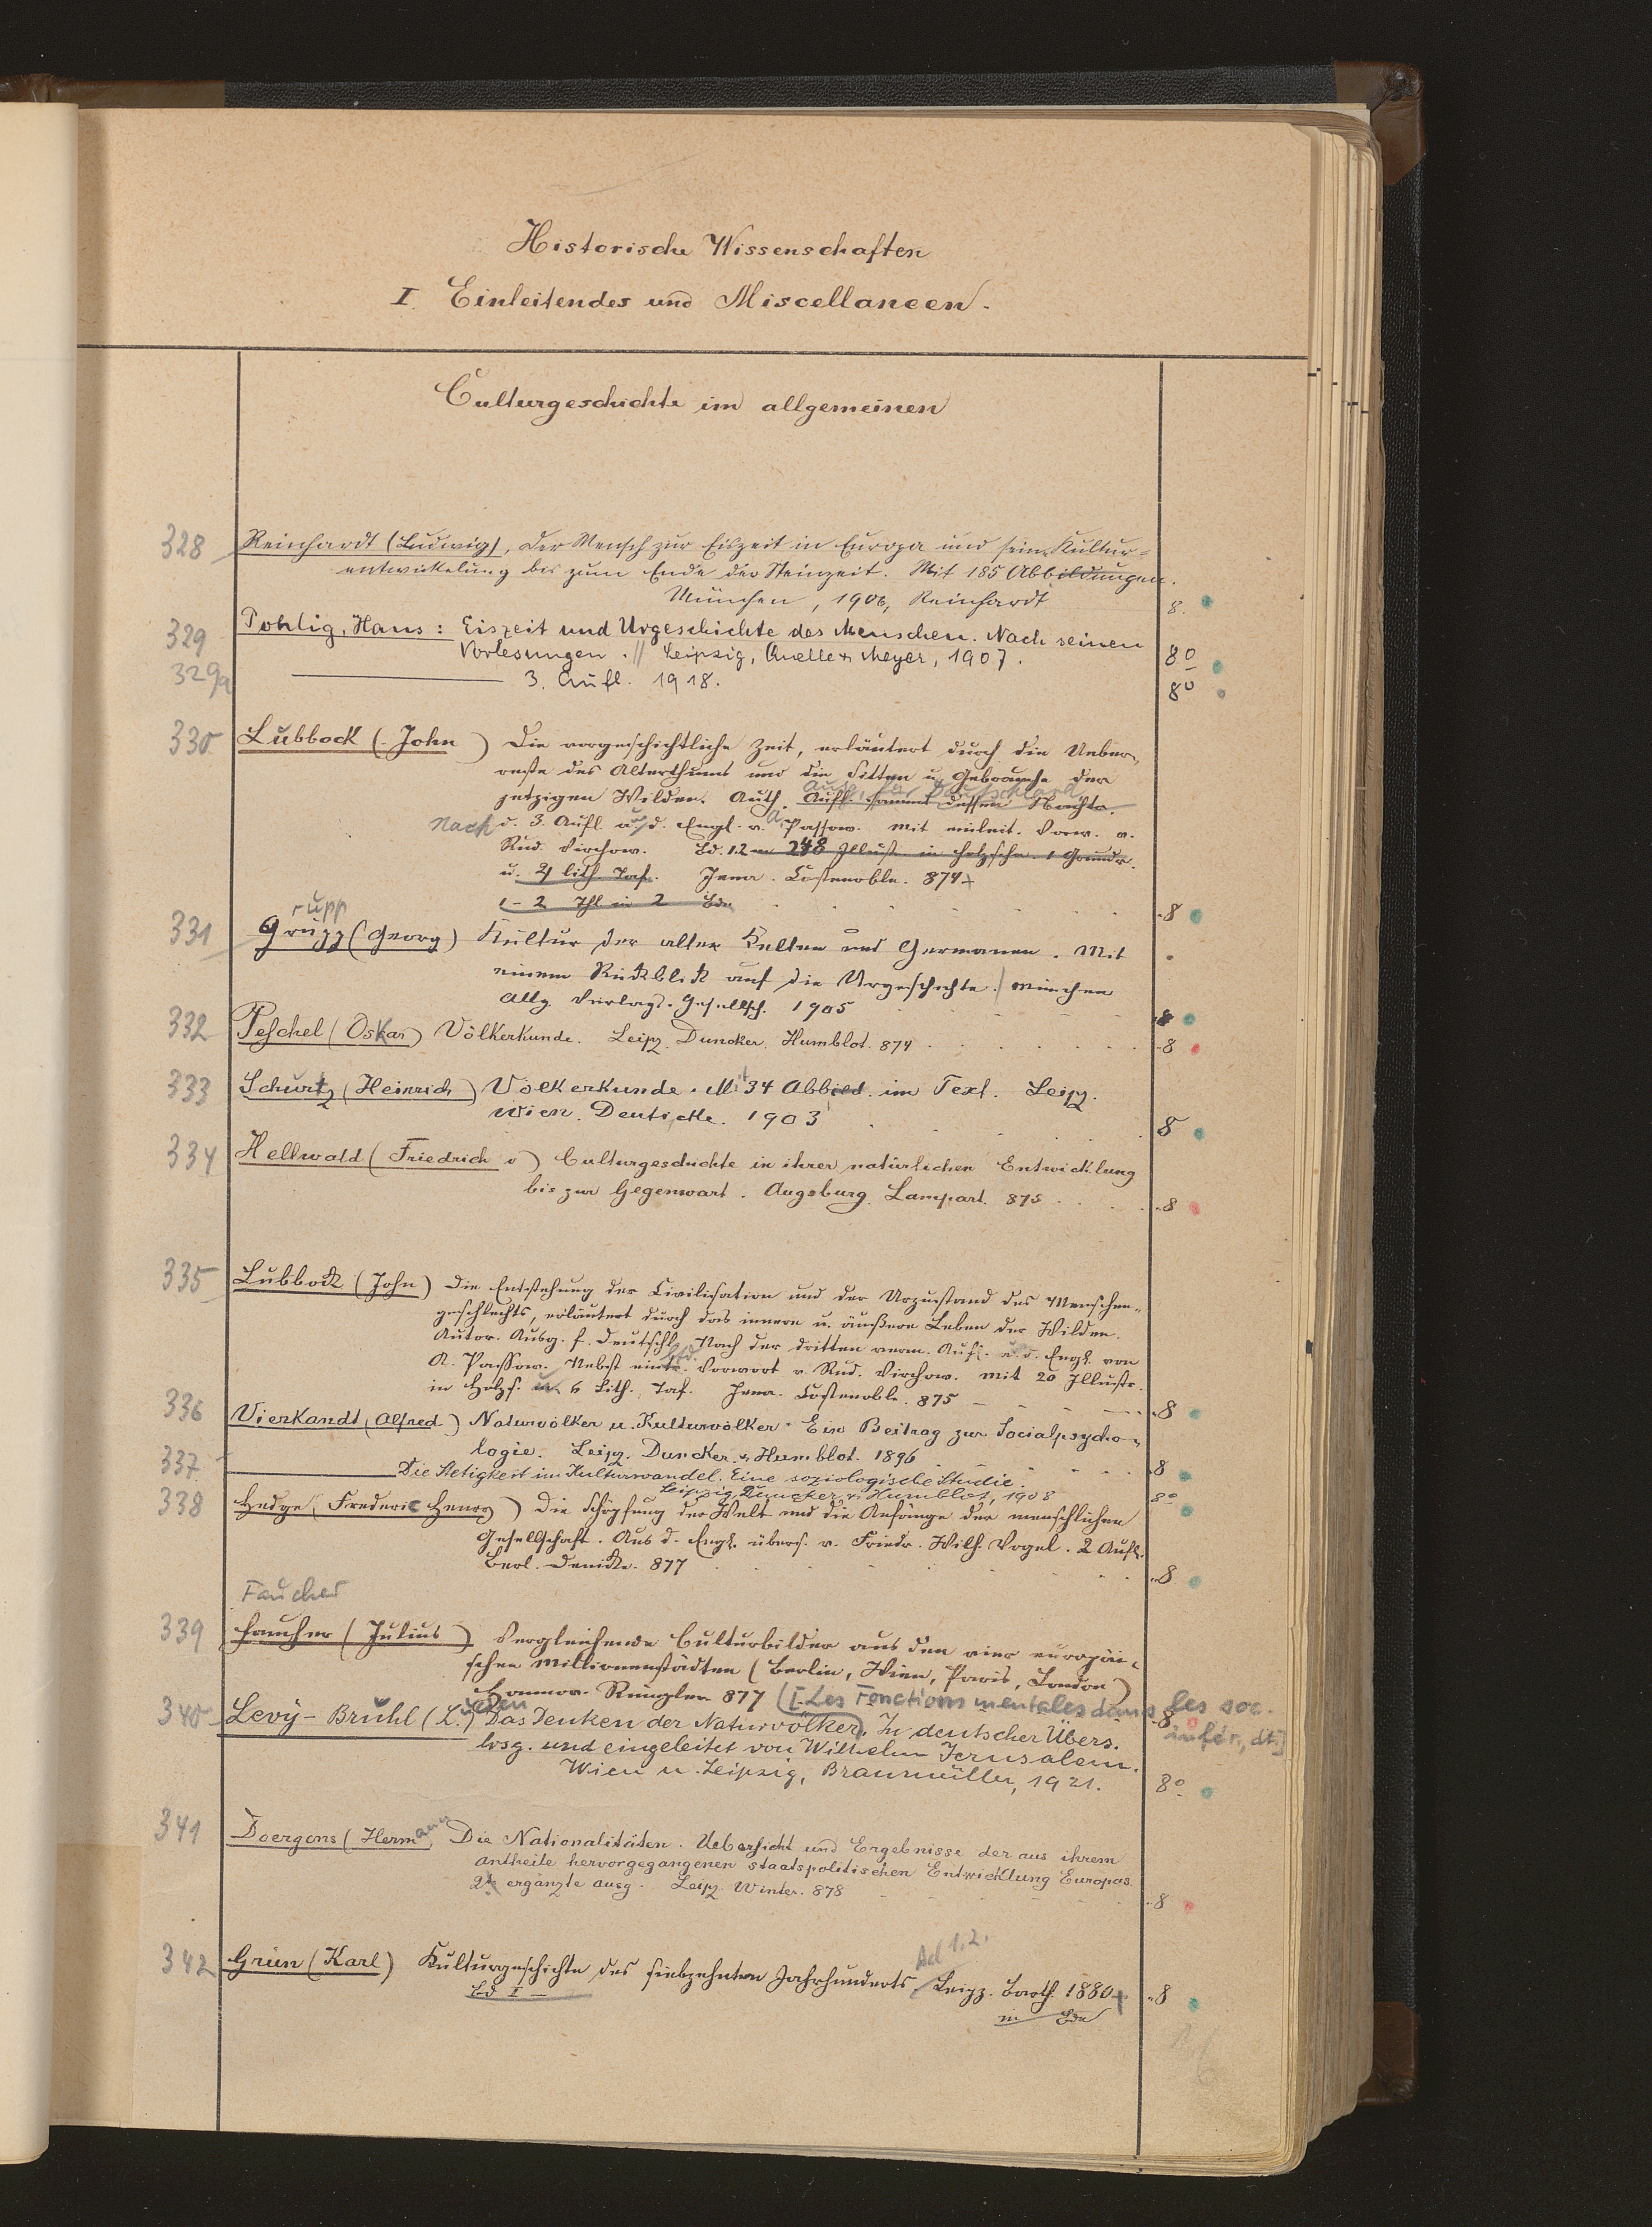 Historische Wissenschaften
I. Einleitendes und Miscellaneen.
Culturgeschichte im allgemeinen
328 Reinhardt (Ludwig), Der Mensch zur Eiszeit in Europa und seine Kultur=
entwickelung bis zum Ende der Steinzeit. Mit 185 Abbildungen.
München, 1906, Reinhardt 8.
329 Pohlig, Hans: Eiszeit und Urgeschichte des Menschen. Nach seinen
Vorlesungen. // Leipzig, Quelle & Meyer, 1907. 8º
329a 3. Aufl. 1918. 8º
330 Lubbock (John) Die vorgeschichtliche Zeit, erläutert durch die Ueber-
reste des Alterthums und die Sitten u. Gebräuche der
Ausg. für Deutschland
jetzigen Wilden. Auth. Aufl. dessen
Nach d. 3. Aufl. aus d. Engl. v. A. Passow. Mit einleit. Vorw. v.
Rud. Virchow. Bd. 1.2 m 248 Illust. in Holzschn. 1 Grundr.
u. 2 lith. Taf. Jena. Costenoble. 874
1-2 Thl in 2 Bdn 8
rupp
331 Grupp (Georg) Kultur der alten Kelten und Germanen. Mit
einem Rückblick auf die Urgeschichte. München
Allg. Verlags-Gesellsch. 1905 8
332 Peschel (Oskar) Völkerkunde. Leipz. Duncker. Humblot. 874 8
333 Schurtz (Heinrich) Völkerkunde. Mit 34 Abbild. im Text. Leipz.
Wien. Deuticke. 1903 8
334 Hellwald (Friedrich v) Culturgeschichte in ihrer natürlichen Entwicklung
bis zur Gegenwart. Augsburg. Lampart. 875 8
335 Lubbock (John) Die Entstehung der Civilisation und der Urzustand des Menschen-
geschlechts, erläutert durch das innere u. äußere Leben der Wilden.
Autor. Ausg. f. Deutschl. Nach der dritten verm. Aufl. a. d. Engl. von
A. Passow. Nebst einltd. Vorwort v. Rud. Virchow. Mit 20 Illustr.
in Holzs. u. 6 Lith. Taf. Jena. Costenoble. 875 8
336 Vierkandt (Alfred) Naturvölker u. Kulturvölker. Ein Beitrag zur Socialpsycho-
logie. Leipz. Duncker & Humblot. 1896 8
337 Die Stetigkeit im Kulturwandel. Eine soziologische Studie.
Leipzig, Duncker & Humblot, 1908 8º
338 Hedge (Frederic Henry) Die Schöpfung der Welt und die Anfänge der menschlichen
Gesellschaft. Aus d. Engl. übers. v. Friedr. Wilh. Vogel. 2 Aufl.
Berl. Denicke. 877 8
Faucher
339 Faucher (Julius) Vergleichende Culturbilder aus den vier europäi-
schen Millionenstädten (Berlin, Wien, Paris, London)
Hannov. Rümpler. 877 8
([Les Fonctions mentales dans les soc.
infér., dt.]
340 Levy-Brühl (L.) Das Denken der Naturvölker. In deutscher Übers.
hrsg. und eingeleitet von Wilhelm Jerusalem.
Wien u. Leipzig, Braumüller, 1921. 8º
341 Doergens (Hermann Die Nationalitäten. Uebersicht und Ergebnisse der aus ihrem
Antheile hervorgegangenen staatspolitischen Entwicklung Europas.
2te ergänzte Ausg. Leipz. Winter. 878 8
342 Grün (Karl) Kulturgeschichte des siebzehnten Jahrhunderts Bd 1.2. Leipz. Barth. 1880 8
Bd I —
in Bdn